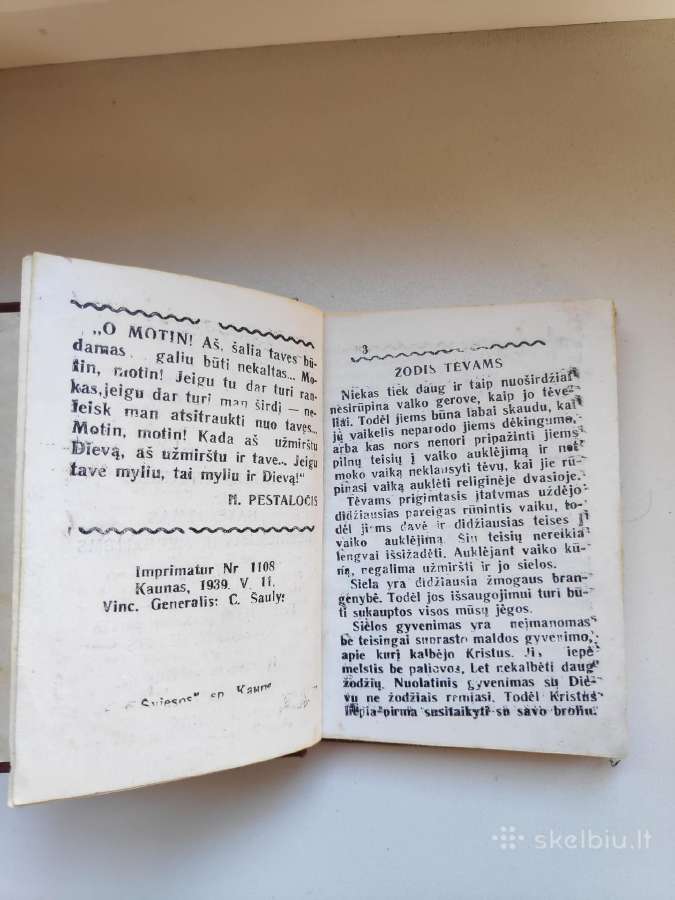 „O MOTIN! Aš, šalia tavęs bū-
damas galiu būti nekaltas... Mo-
tin, motin! Jeigu tu dar turi ran-
kas,jeigu dar turi man širdį — ne-
leisk man atsitraukti nuo tavęs...
Motin, motin! Kada aš užmirštu
Dievą, aš užmirštu ir tave... Jeigu
tave myliu, tai myliu ir Dievą!“
M. PESTALOČIS
Imprimatur Nr 1108
Kaunas, 1939. V. 11.
Vinc. Generalis: C. Šaulys
„Šviesos“ sp. Kaune
3
ŽODIS TĖVAMS
Niekas tiek daug ir taip nuoširdžiai
nesirūpina vaiko gerove, kaip jo tėve-
liai. Todėl jiems būna labai skaudu, kai
jų vaikelis neparodo jiems dėkingumo,
arba kas nors nenori pripažinti jiems
pilnų teisių į vaiko auklėjimą ir net
moko vaiką neklausyti tėvų, kai jie rū-
pinasi vaiką auklėti religinėje dvasioje.
Tėvams prigimtasis įstatymas uždėjo
didžiausias pareigas rūpintis vaiku, to-
dėl jiems davė ir didžiausias teises į
vaiko auklėjimą. Šių teisių nereikia
lengvai išsižadėti. Auklėjant vaiko kū-
ną, negalima užmiršti ir jo sielos.
Siela yra didžiausia žmogaus bran-
genybė. Todėl jos išsaugojimui turi bū-
ti sukauptos visos mūsų jėgos.
Sielos gyvenimas yra neįmanomas
be teisingai suprasto maldos gyvenimo,
apie kurį kalbėjo Kristus. Jis liepė
melstis be paliovos. Bet nekalbėti daug
žodžių. Nuolatinis gyvenimas su Die-
vu ne žodžiais remiasi. Todėl Kristus
liepia pirma susitaikyti su savo broliu.
skelbiu.lt